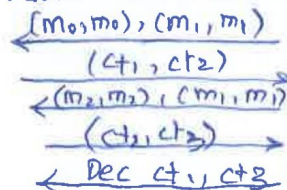 (m₀,m₀), (m₁, m₁)
(ct₁, ct2)
(m₂,m₂), (m₁,m₁)
(ct₂, ct₃)
Dec ct₁, ct3